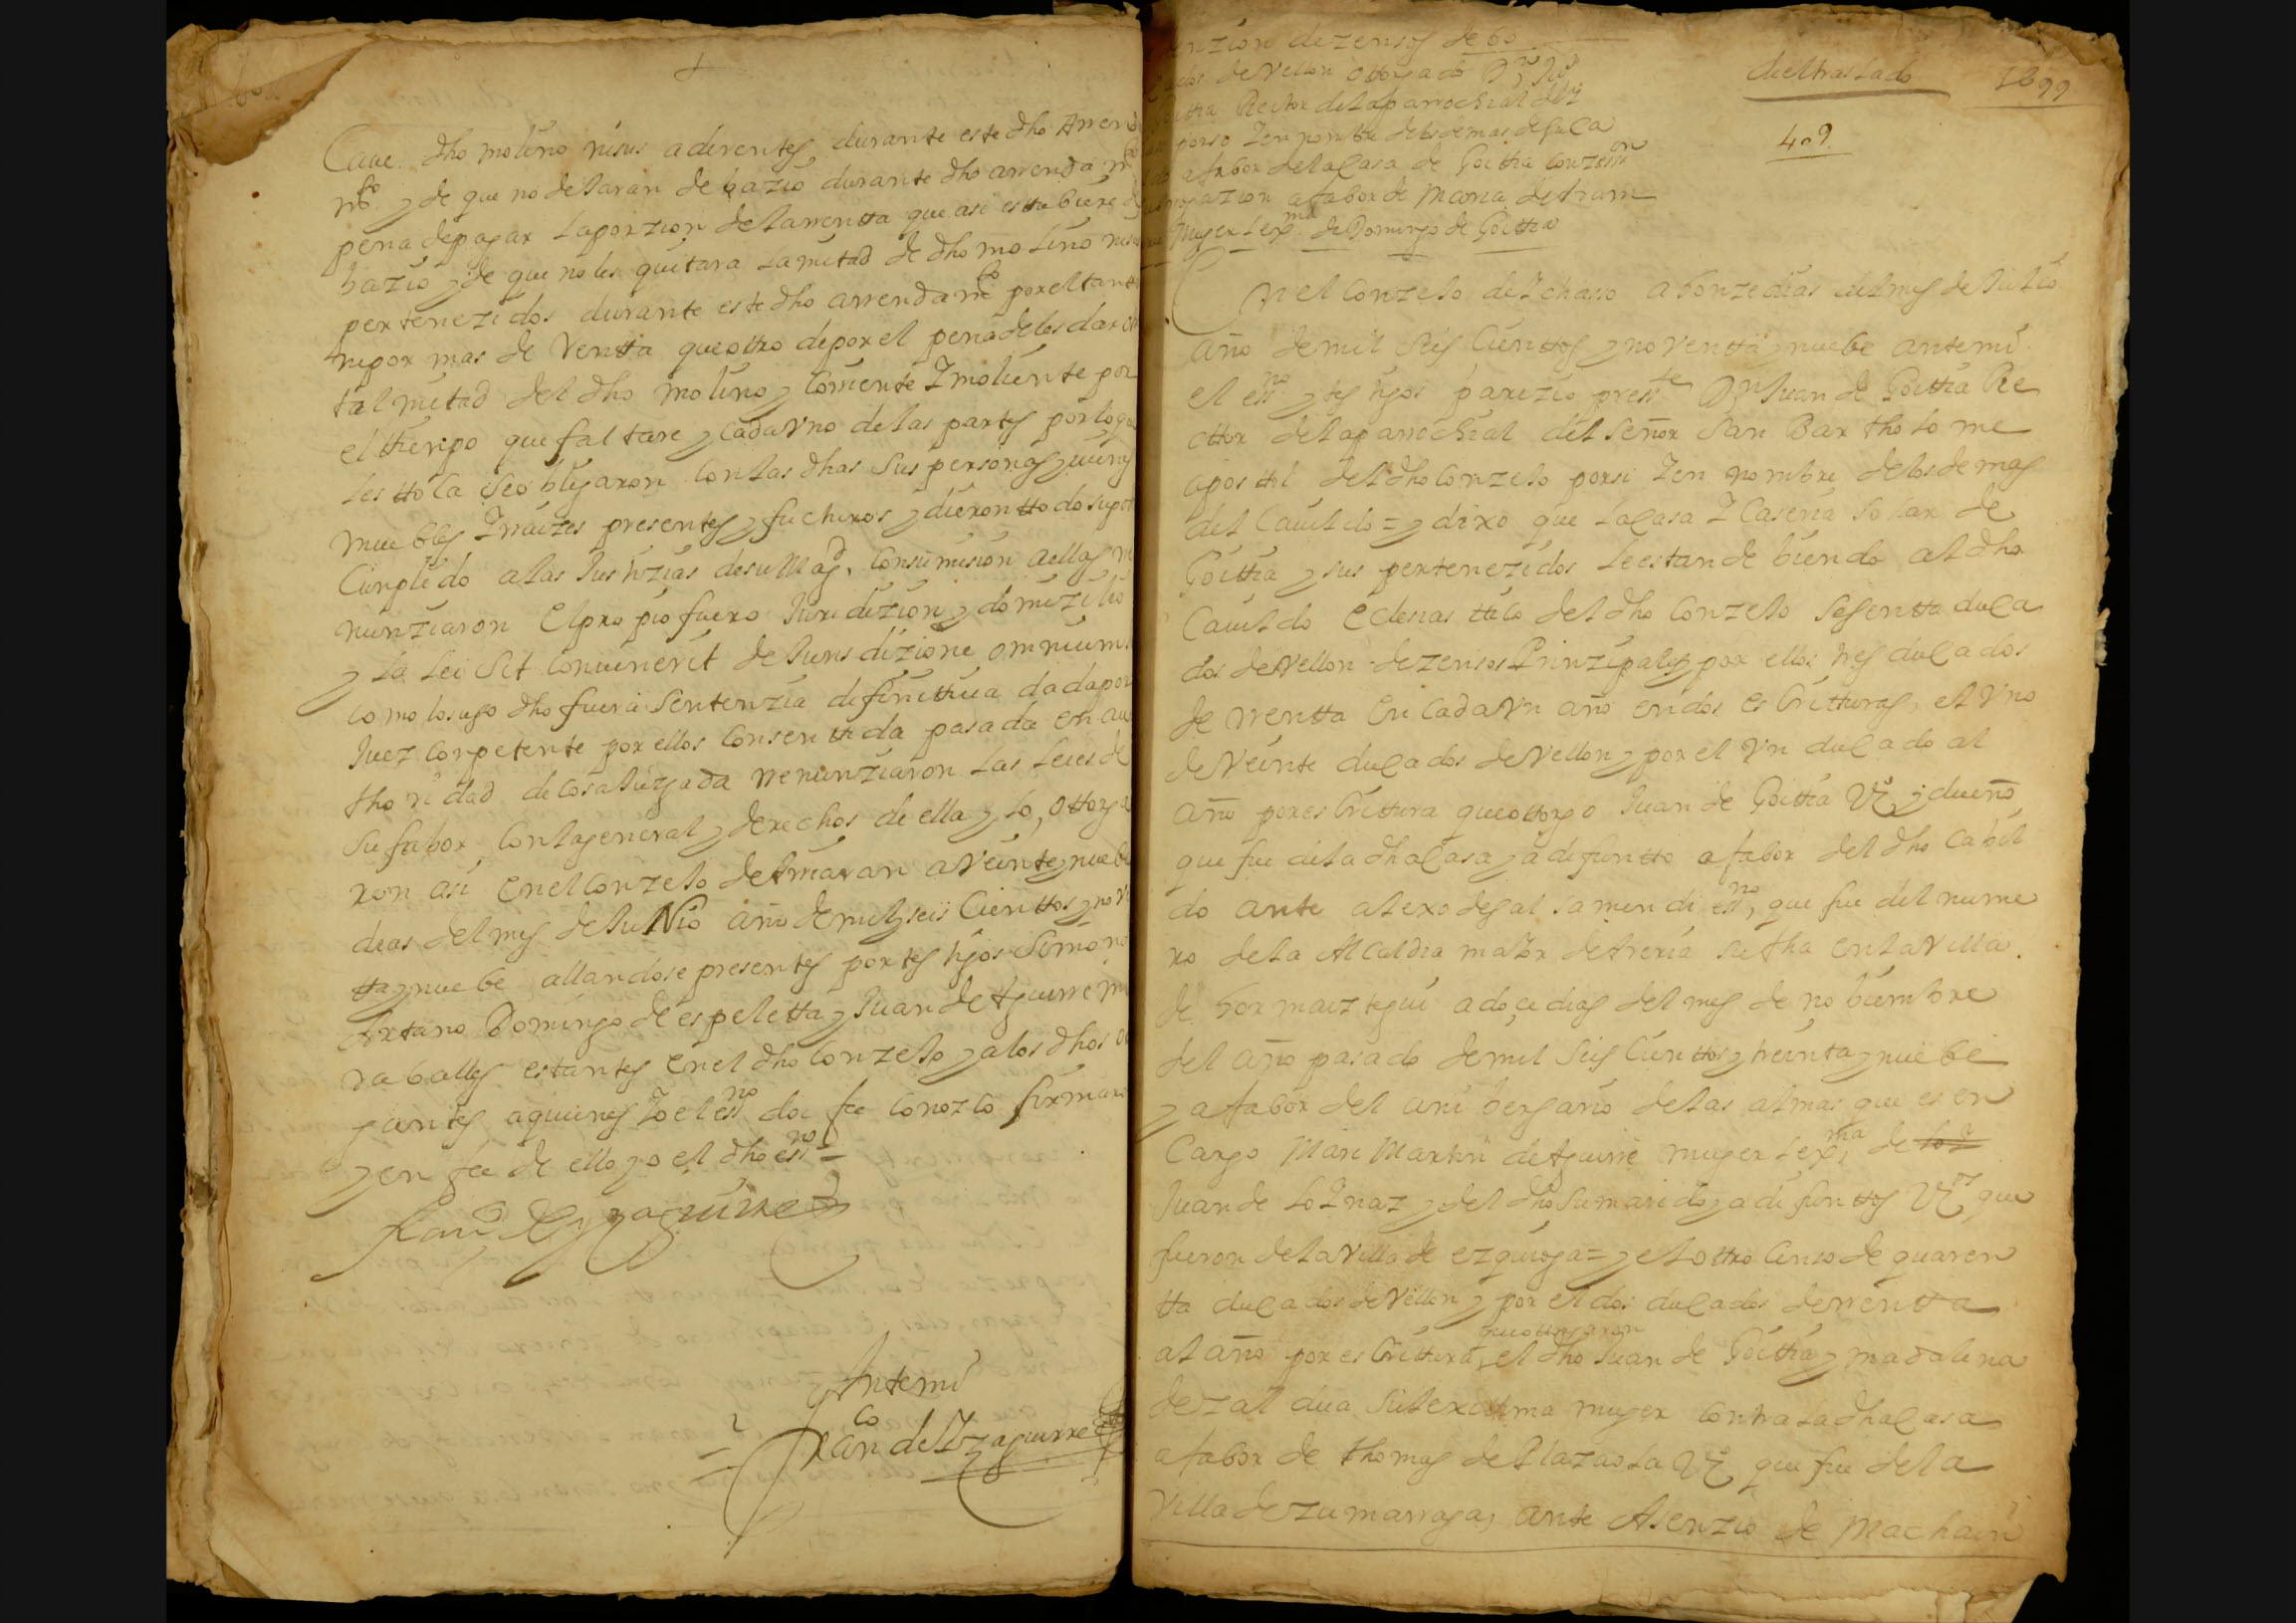 Caue. dho molino nisus aderentes durante este dho Arren
mto y de que no desaran de bazio durante dho arrenda m
pena de pagar la porzion de la rrentta que asi esttubiere de
bazio y de que no les quitara la mitad de dho molino nisus
pertenezidos durante este dho arrendamto por el tantto
ni por mas de rrentta que ottro de por el pena de les dar o
tal mitad del dho molino y Corriente I moliente por
el thienpo que faltare y Cada Vno de las partes por lo que
les ttoca se obligaron Con las dhas Sus personas y uienes
muebles I rraizes presentes y fuchuros y dieron ttodo su po
Cunplido a las Justizias de su Magd. Con sumision a ellas rre
nunziaron El propio fuero Juridizion y domizilio
y la Lei Sit Conuenerit de Jurisdizione omnium.
Como lo sugo dho fuera Sentenzia definittiua dada por
Juez Conpetente por ellos Consenttida pasada en au
thoridad de Cosa Juzgada rrenunziaron las Leies de
Su fabor Con la general y derechos de ella y lo, Ottorga
ron asi En el Conzejo de Arnaran a Veinte y nuebe
dias del mes de JuNio año de mil y seis Cienttos y nov
tta y nuebe allandose presentes por tes tigos Simon
Artano Domingo de espeletta y Juan de Aguirre m
raballes estantes En el dho Conzejo y a los dhos o
gantes a quienes Yo el essno doi fee Conozco firmaro
y en fee de ello yo el dho essno =
Franco de Yzaguirre
Antemi
Franco de Yzaguirre
nzion de zensos de 60
ducados de Vellon Ottorgado Dn Juo
Goittia Rector de la parrochial del
por si I en nombre de los demas de su Ca
a fabor de la Casa de Goittia Con zess
rrogazion a fabor de Maria de Arram
Muger Lexma de Domingo de Goittia
diose traslado 1699
409.
En el Conzejo de Ichaso a Honze dias del mes de Julio
año de mil Seis Cienttos y noventta y nuebe antemi
el essno y tes tigos parezio presste Dn Juan de Goittia Re
cttor de la parrochial del Señor San Bartholome
apostol del dho Conzejo por si I en nombre de los demas
del Cauildo = y dixo que la Casa I Caseria Solar de
Goittia y sus pertenezidos le estan debiendo al dho
Cauildo Eclesiasttico del dho Conzejo Sesentta duca
dos de Vellon de zensos Prinzipales y por ellos tres ducados
de rrentta En Cada Vn año en dos esCritturas, el Vno
de Veinte ducados de Vellon y por el Vn ducado al
año por esCrittura que ottorgo Juan de Goittia Vzo y dueño
que fue de la dha Casa ya difuntto a fabor del dho Cabil
do ante alexo de galsamendi essno, que fue del nume
ro de la Alcaldia maior de Areria su fha en la Villa.
de Hormaiztegui a doce dias del mes de nobiembre
del año pasado de mil Seis Cienttos y treinta y nuebe
y a fabor del anibersario de las almas que es en
Cargo Mari Martin de Aguirre muger Lexma, de
Juan de Loinaz y del dho Su marido ya difunttos Vzos que
fueron de la Villa de ezquioga = y el ottro Censo de quaren
tta ducados de Vellon y por el dos ducados de rrentta
que ottorgaron
al año por esCrittura, el dho Juan de Goittia y madalena
de zaldua Su lexittima muger Contra la dha Casa
a fabor de thomas de Plazaola Vzo que fue de la
Villa de Zumarraga, ante Asenzio de Machain